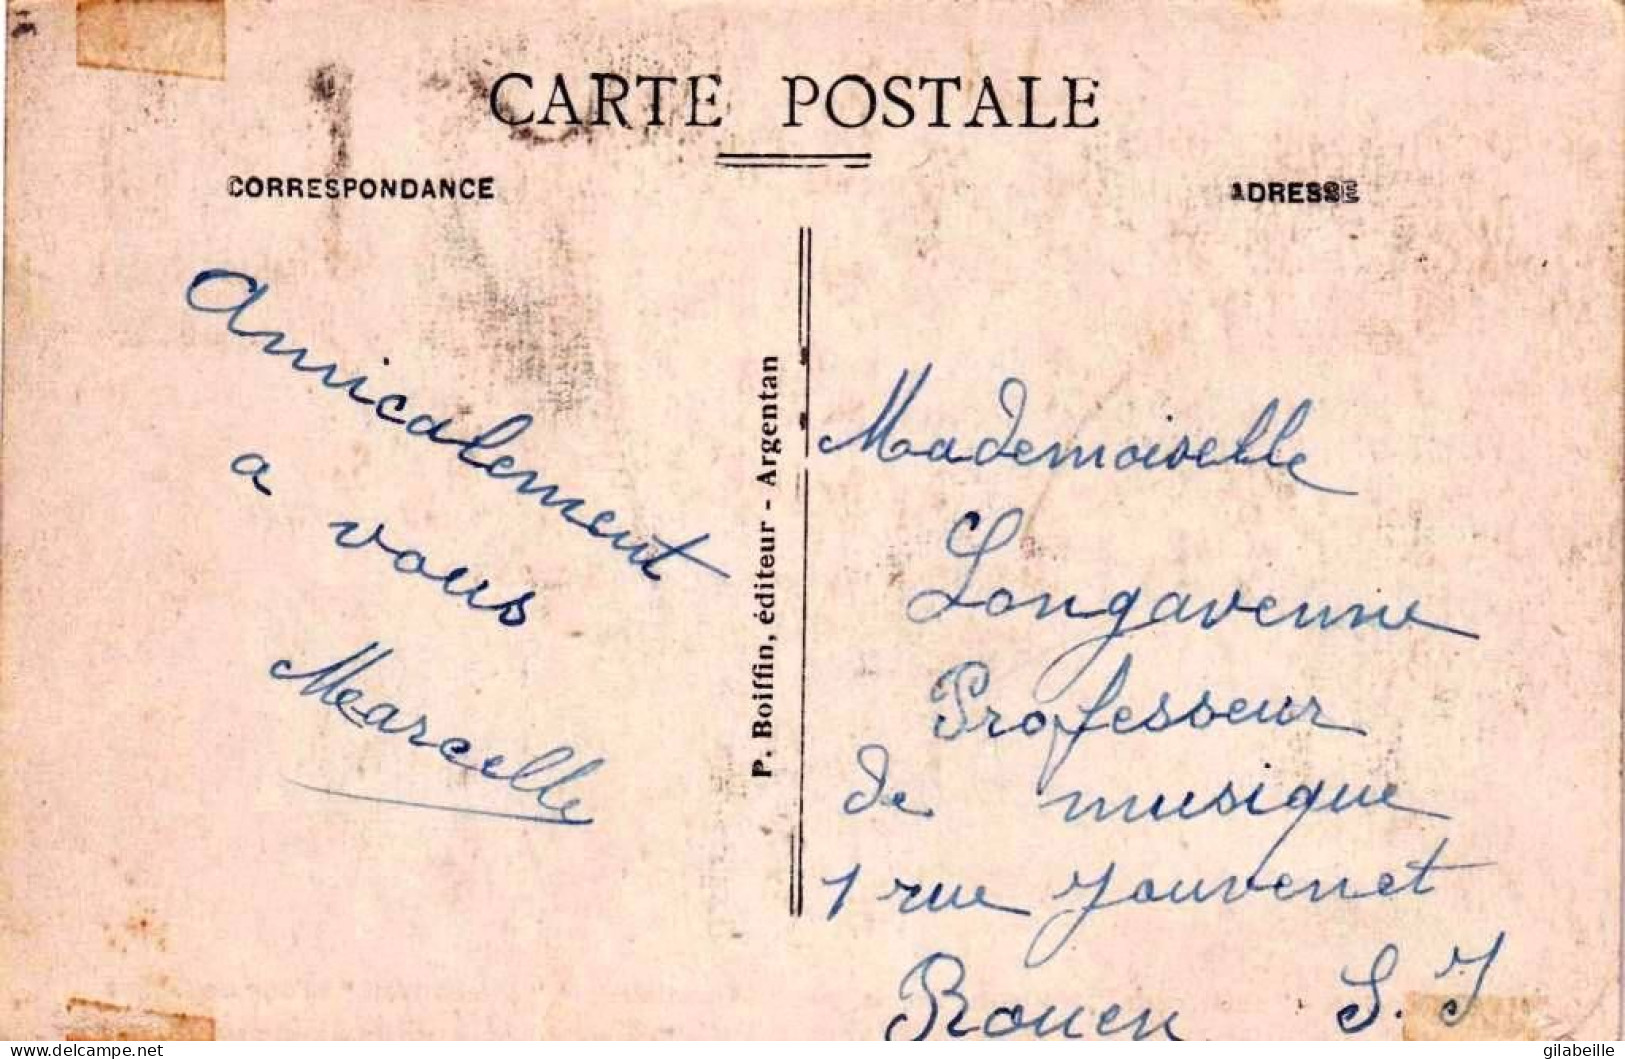 CARTE POSTALE
CORRESPONDANCE
ADRESSE
Amicalement
a vous
Marcelle
P. Boiffin, éditeur - Argentan
Mademoiselle
Longavenne
Professeur
de musique
1 rue Jouvenet
Rouen S. I
delcampe.net
gilabeille